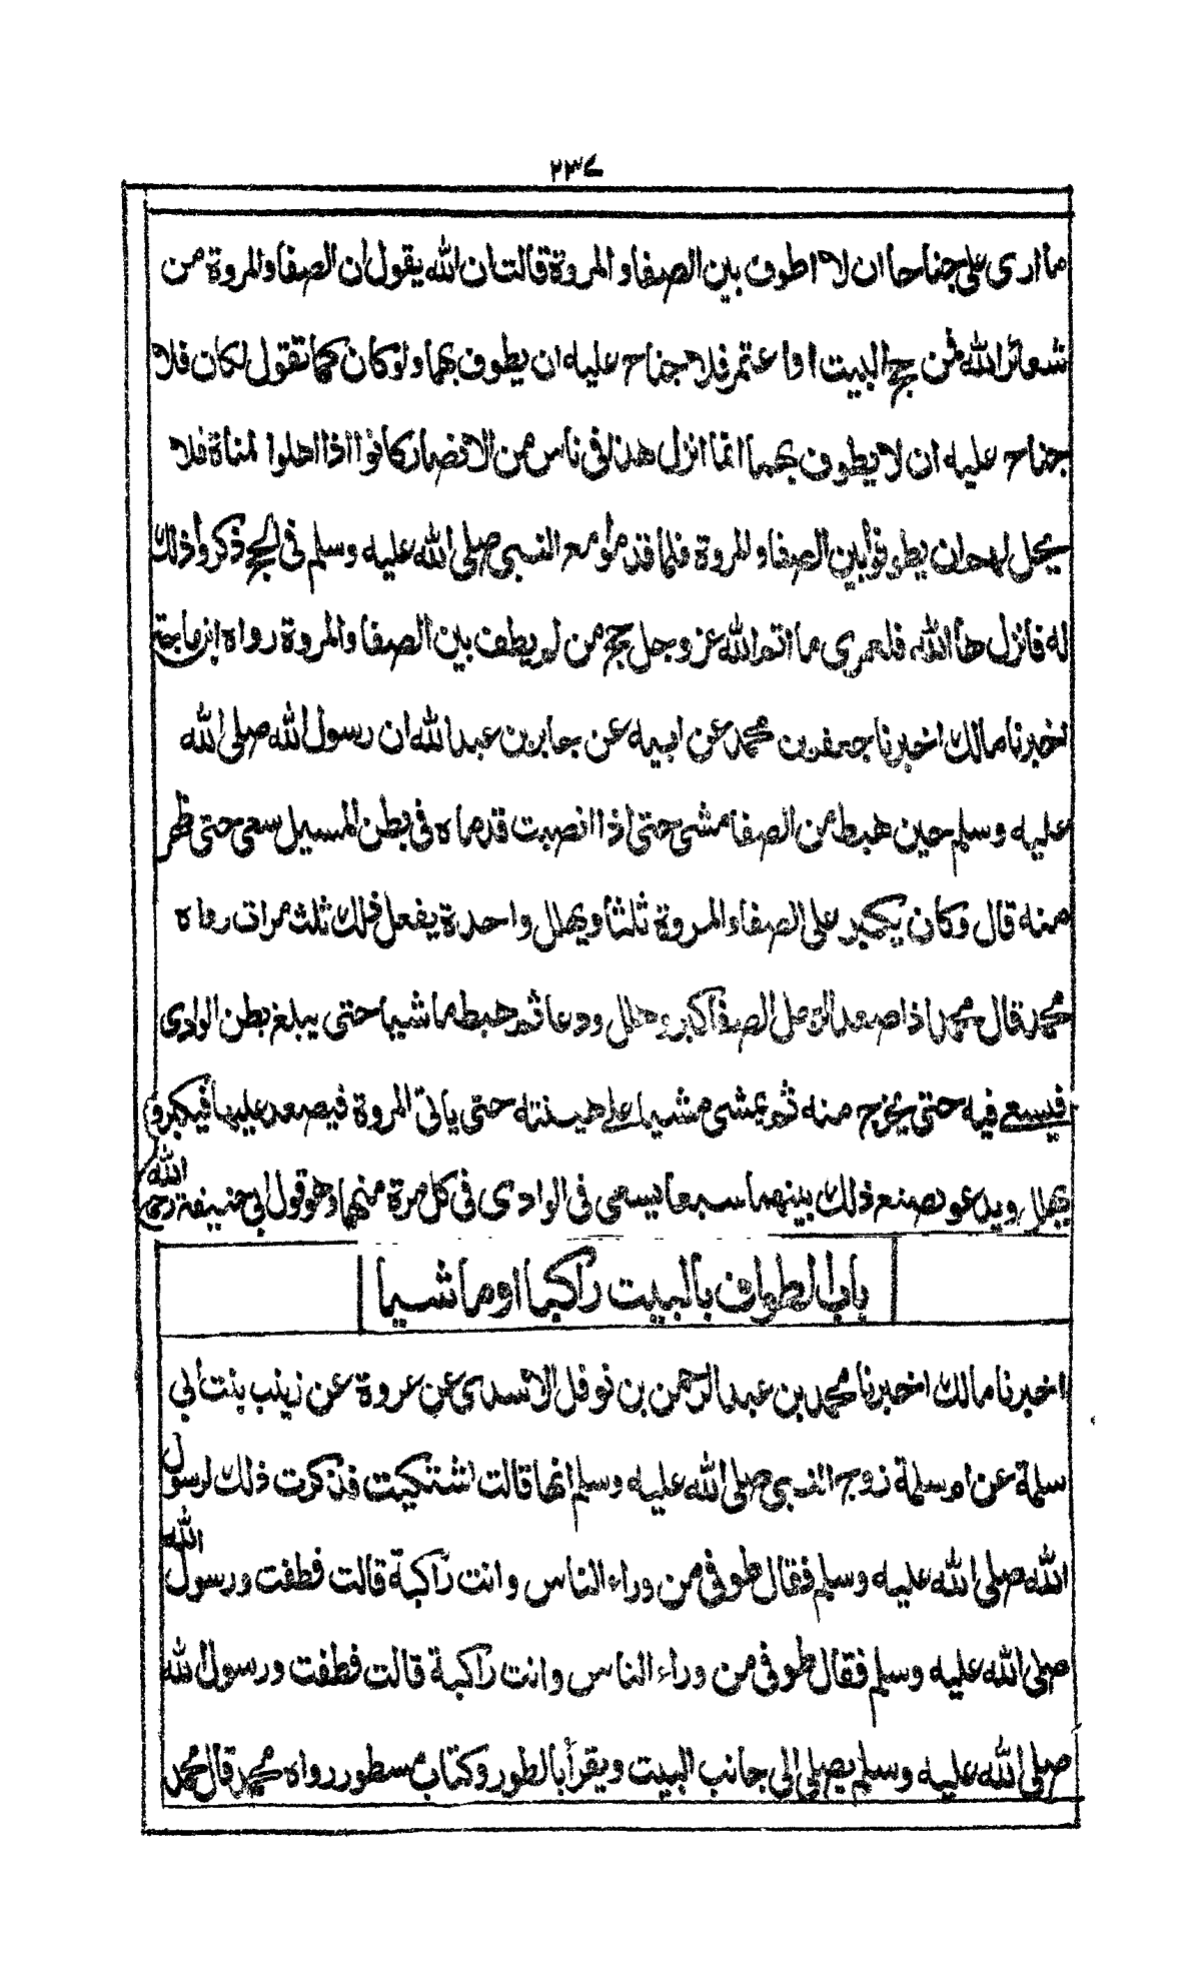 ٢٣٧
ما ارى على جناحا ان لا اطوف بين الصفا والمروة قالت ان الله يقول ان الصفا والمروة من
شعائر الله فمن حج البيت او اعتمر فلا جناح عليه ان يطوف بهما ولو كان كما تقول لكان فلا
جناح عليه ان لا يطوف بهما انما انزل هذا فى ناس من الانصار كانوا اذا اهلوا لمناة فلا
يحل لهم ان يطوفوا بين الصفا والمروة فلما قدموا مع النبى صلى الله عليه وسلم فى الحج ذكروا ذلك
له فانزل ها الله فلعمرى ما اتم الله عز وجل حج من لم يطف بين الصفا والمروة رواه ابن ماجة
اخبرنا مالك اخبرنا جعفر بن محمد عن ابيه عن جابر بن عبد الله ان رسول الله صلى الله
عليه وسلم حين هبط من الصفا مشى حتى اذا انصبت قدماه فى بطن المسيل سعى حتى ظهر
منه قال وكان يكبر على الصفا والمروة ثلثا ويهلل واحدة يفعل ذلك ثلث مرات رواه
محمد قال محمد اذا صعد الرجل الصفا كبر وهلل ودعا ثم هبط ماشيا حتى يبلغ بطن الوادى
فيسعى فيه حتى يخرج منه ثم يمشى مشيا على هينته حتى ياتى المروة فيصعد عليها فيكبر و
يهلل ويدعو يصنع ذلك بينهما سبعا يسعى فى الوادى فى كل مرة منهما وهو قول ابى حنيفة رحمه الله
باب الطواف بالبيت راكبا او ماشيا
اخبرنا مالك اخبرنا محمد بن عبد الرحمن بن نوفل الاسدى عن عروة عن زينب بنت أبى
سلمة عن ام سلمة زوج النبى صلى الله عليه وسلم انها قالت اشتكيت فذكرت ذلك لرسول
الله صلى الله عليه وسلم فقال طوفى من وراء الناس وانت راكبة قالت فطفت ورسول الله
صلى الله عليه وسلم فقال طوفى من وراء الناس وانت راكبة قالت فطفت ورسول لله
صلى الله عليه وسلم يصلى الى جانب البيت ويقرأ بالطور وكتاب مسطور رواه محمد قال محمد